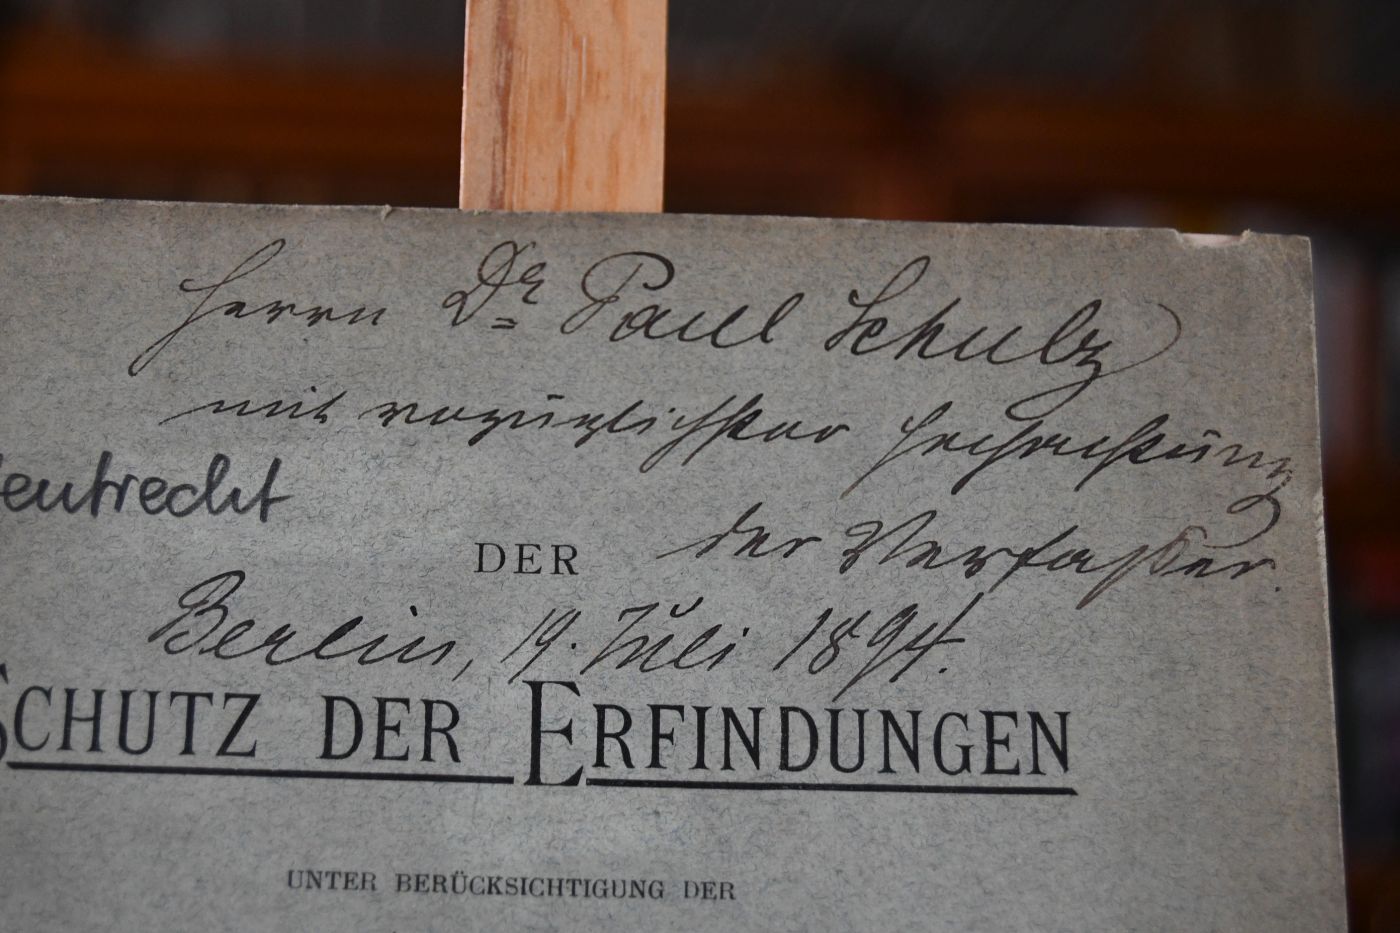 Herrn Dr. Paul Schulz
mit vorzüglichster Hochachtung
der Verfaßer.
DER
Berlin, 19. Juli 1894.
SCHUTZ DER ERFINDUNGEN
UNTER BERÜCKSICHTIGUNG DER